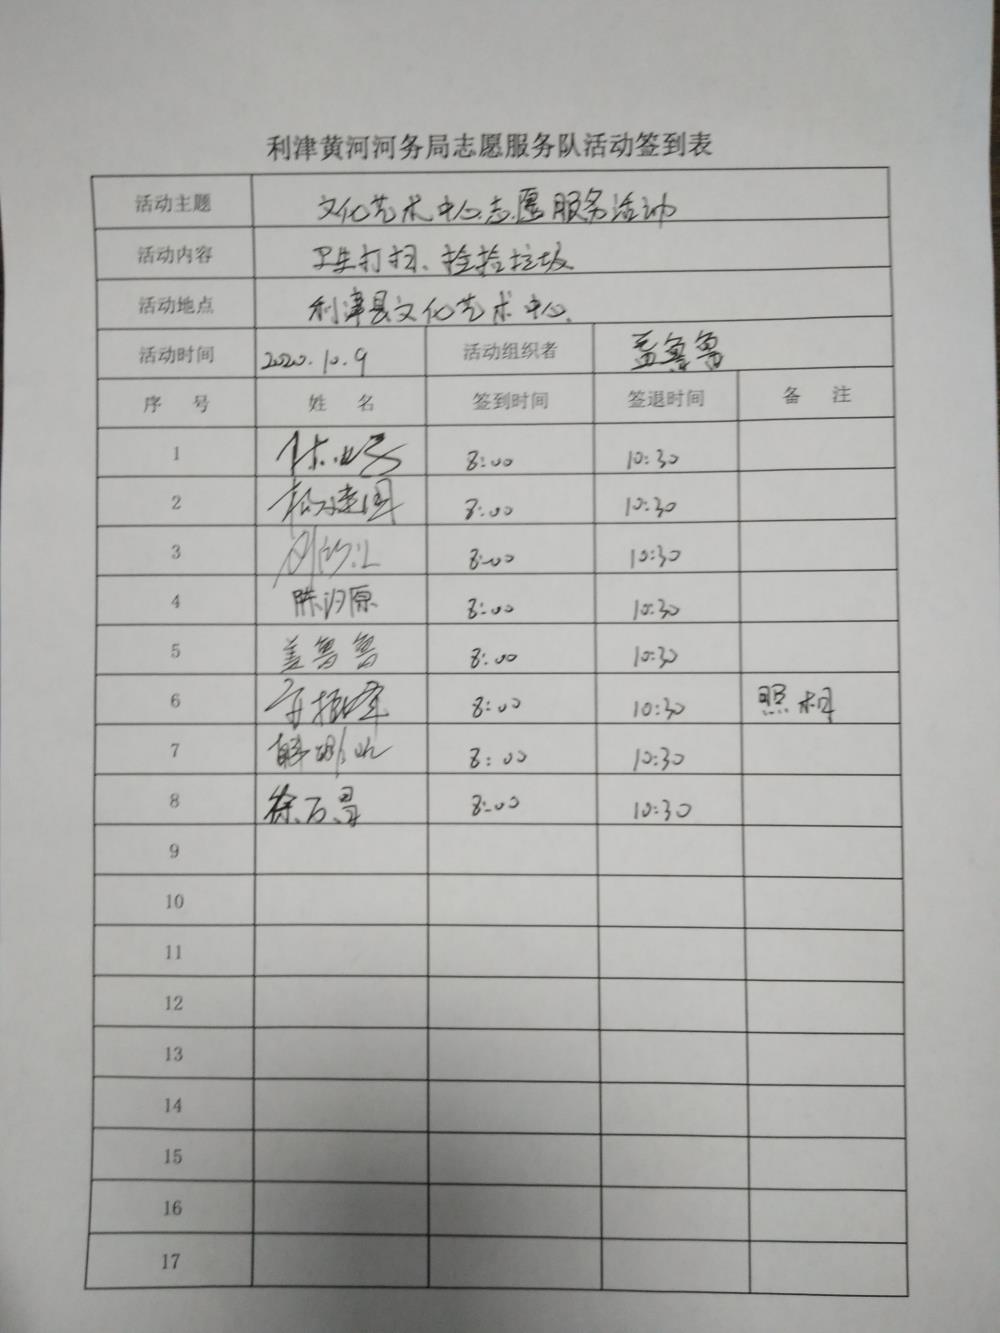 利津黄河河务局志愿服务队活动签到表
活动主题 文化艺术中心志愿服务活动
活动内容 卫生打扫、捡拾垃圾
活动地点 利津县文化艺术中心
活动时间 2020.10.9 活动组织者 盖鲁鲁
序 号 姓 名 签到时间 签退时间 备 注
1 8:00 10:30
2 8:00 10:30
3 8:00 10:30
4 陈汐原 8:00 10:30
5 盖鲁鲁 8:00 10:30
6 8:00 10:30 照相
7 8:00 10:30
8 徐万昌 8:00 10:30
9
10
11
12
13
14
15
16
17